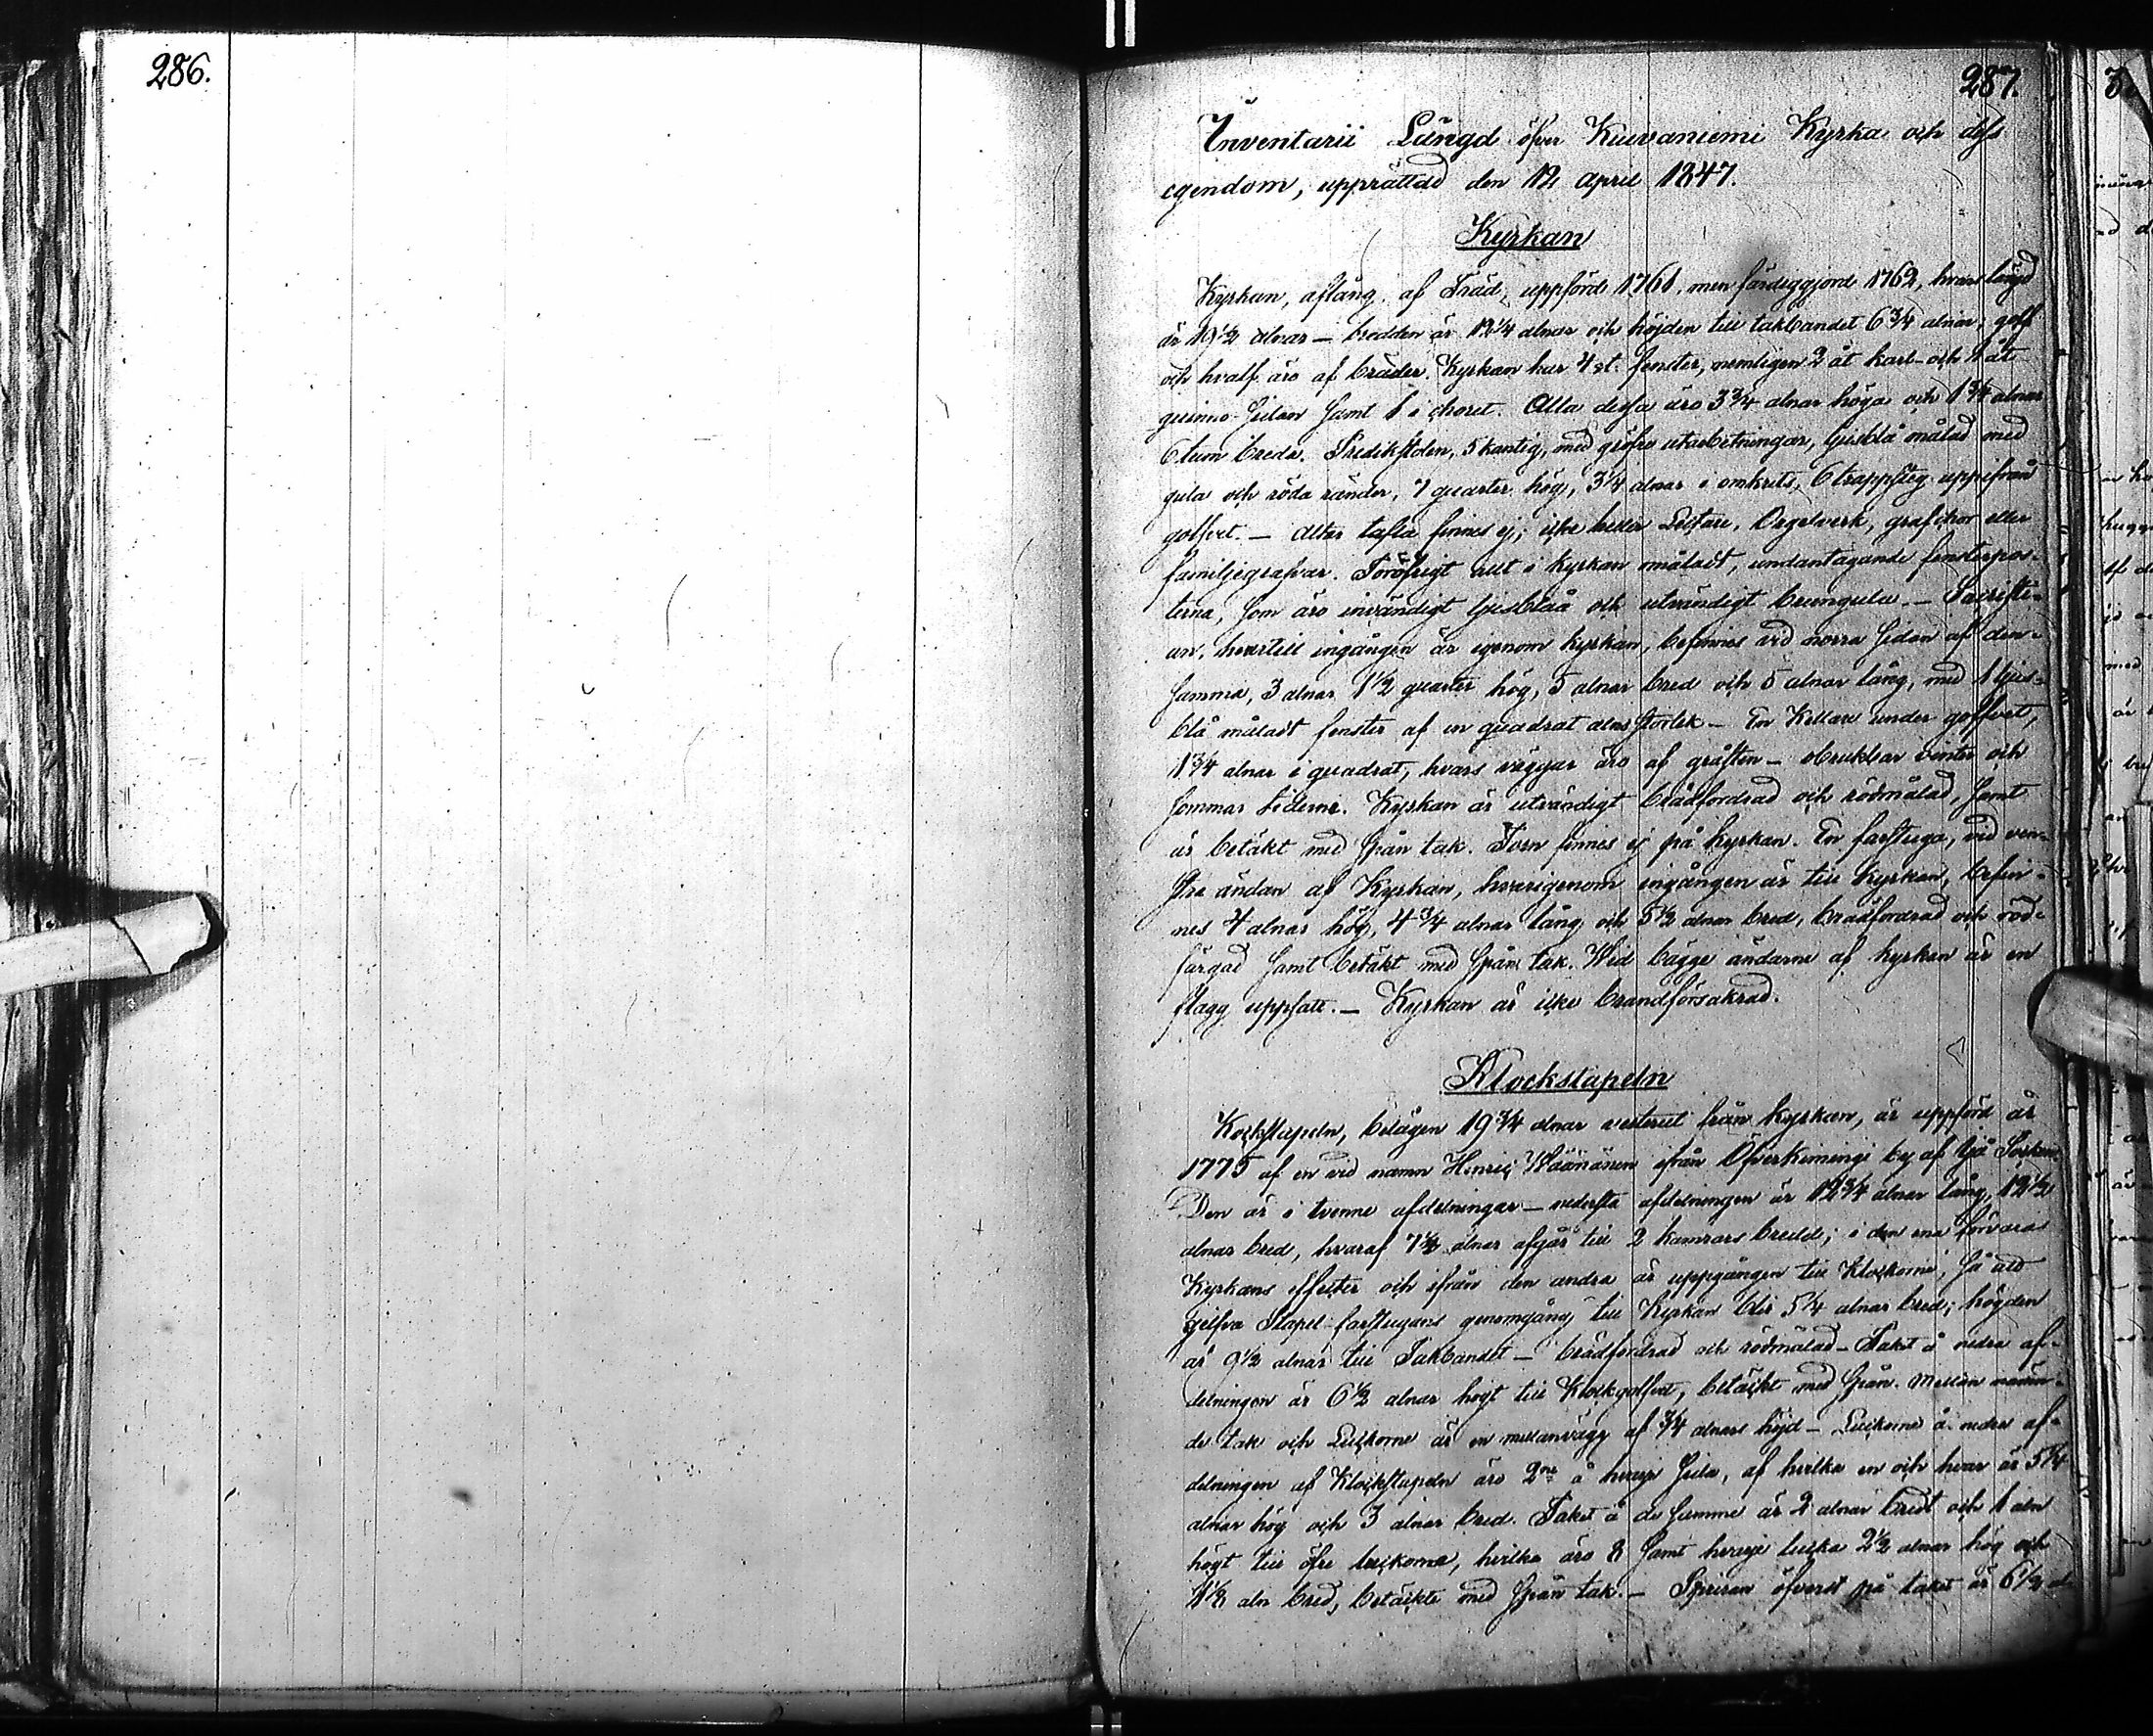 286.
287.
Inventarii Längd öfver Kuivaniemi Kyrka och dess
egendom, upprättad den 12 April 1847.
Kyrkan
Kyrkan, aflång, af Träd, uppförd 1761, men färdiggjord 1762, hvars längd
är 19 1/2 alnar – bredden är 12 1/4 alnar och höjden till takbandet 6 3/4 alnar; golf
och hvalf äro af bräder. Kyrkan har 4 st. fenster, nemligen 2 åt karl- och 1 åt
quinno-sidan samt 1 i choret. Alla dessa äro 3 3/4 alnar höga och 1 3/4 alnar
6 tum breda. Predikstolen, 5 kantig, med gröfre utarbetningar, ljusblå målad med
gula och röda ränder, 7 quarter hög, 3 1/4 alnar i omkrets, 6 trappsteg uppifrån
golfvet. – Altar tafla finnes ej; icke heller Lectare, Orgelverk, grafchor eller
familjegrafvar. Föröfrigt allt i kyrkan omåladt, undantagande fensterpos-
terna, som äro invändigt ljusblåa och utvändigt brungula. – Sacristi-
an, hvartill ingången är igenom kyrkan, befinnes vid norra sidan af den-
samma, 3 alnar 1 1/2 quarter hög, 5 alnar bred och 5 alnar lång, med 1 ljus-
blå måladt fenster af en quadrat alns storlek – En Kellare under golfvet,
1 3/4 alnar i quadrat, hvars väggar äro af gråsten – obrukbar vinter och
sommar tiderne. Kyrkan är utvändigt brädfordrad och rödmålad, samt
är betäkt med spån tak. Torn finnes ej på kyrkan. En farstuga, vid ven-
stra ändan af Kyrkan, hvarigenom ingången är till kyrkan, befin-
nes 4 alnar hög, 4 3/4 alnar lång och 5 1/2 alnar bred, brädfordrad och röd-
färgad samt betäkt med spån tak. Wid bägge ändarne af kyrkan är en
flagg uppsatt. – Kyrkan är icke brandförsäkrad.
Klockstapeln
Kockstapeln, belägen 19 3/4 alnar vesterut från kyrkan, är uppförd år
1775 af en vid namn Henric Wäänänen ifrån Öfverkimingi by af Ijå Socken.
Den är i tvenne afdelningar – nedersta afdelningen är 12 3/4 alnar lång, 12 1/2
alnar bred, hvaraf 7 1/4 alnar afgår till 2 kamrars bredd; i den ena förvaras
Kyrkans effecter och ifrån den andra är uppgången till Klockorne, så att
sjelfva Stapel-farstugans genomgång till Kyrkan blir 5 1/4 alnar bred; höjden
är 9 1/2 alnar till Takbandet – brädfordrad och rödmålad – Taket å nedra af-
delningen är 6 1/2 alnar högt till Klockgolfvet, betäckt med spån. Mellan nämn-
de tak och Luckorne är en mellanvägg af 3/4 alnars höjd – Luckorne å nedra af-
delningen af Klockstapeln äro 2ne å hvarje sida, af hvilka en och hvar är 5 1/4
alnar hög och 3 alnar bred. Taket å de samma är 2 alnar bredt och 1 aln
högt till öfre luckorna, hvilka äro 8 samt hvarje lucka 2 1/2 alnar hög och
1 1/2 aln bred, betäckte med spån tak. – Spiran öfverst på taket är 6 1/2 al